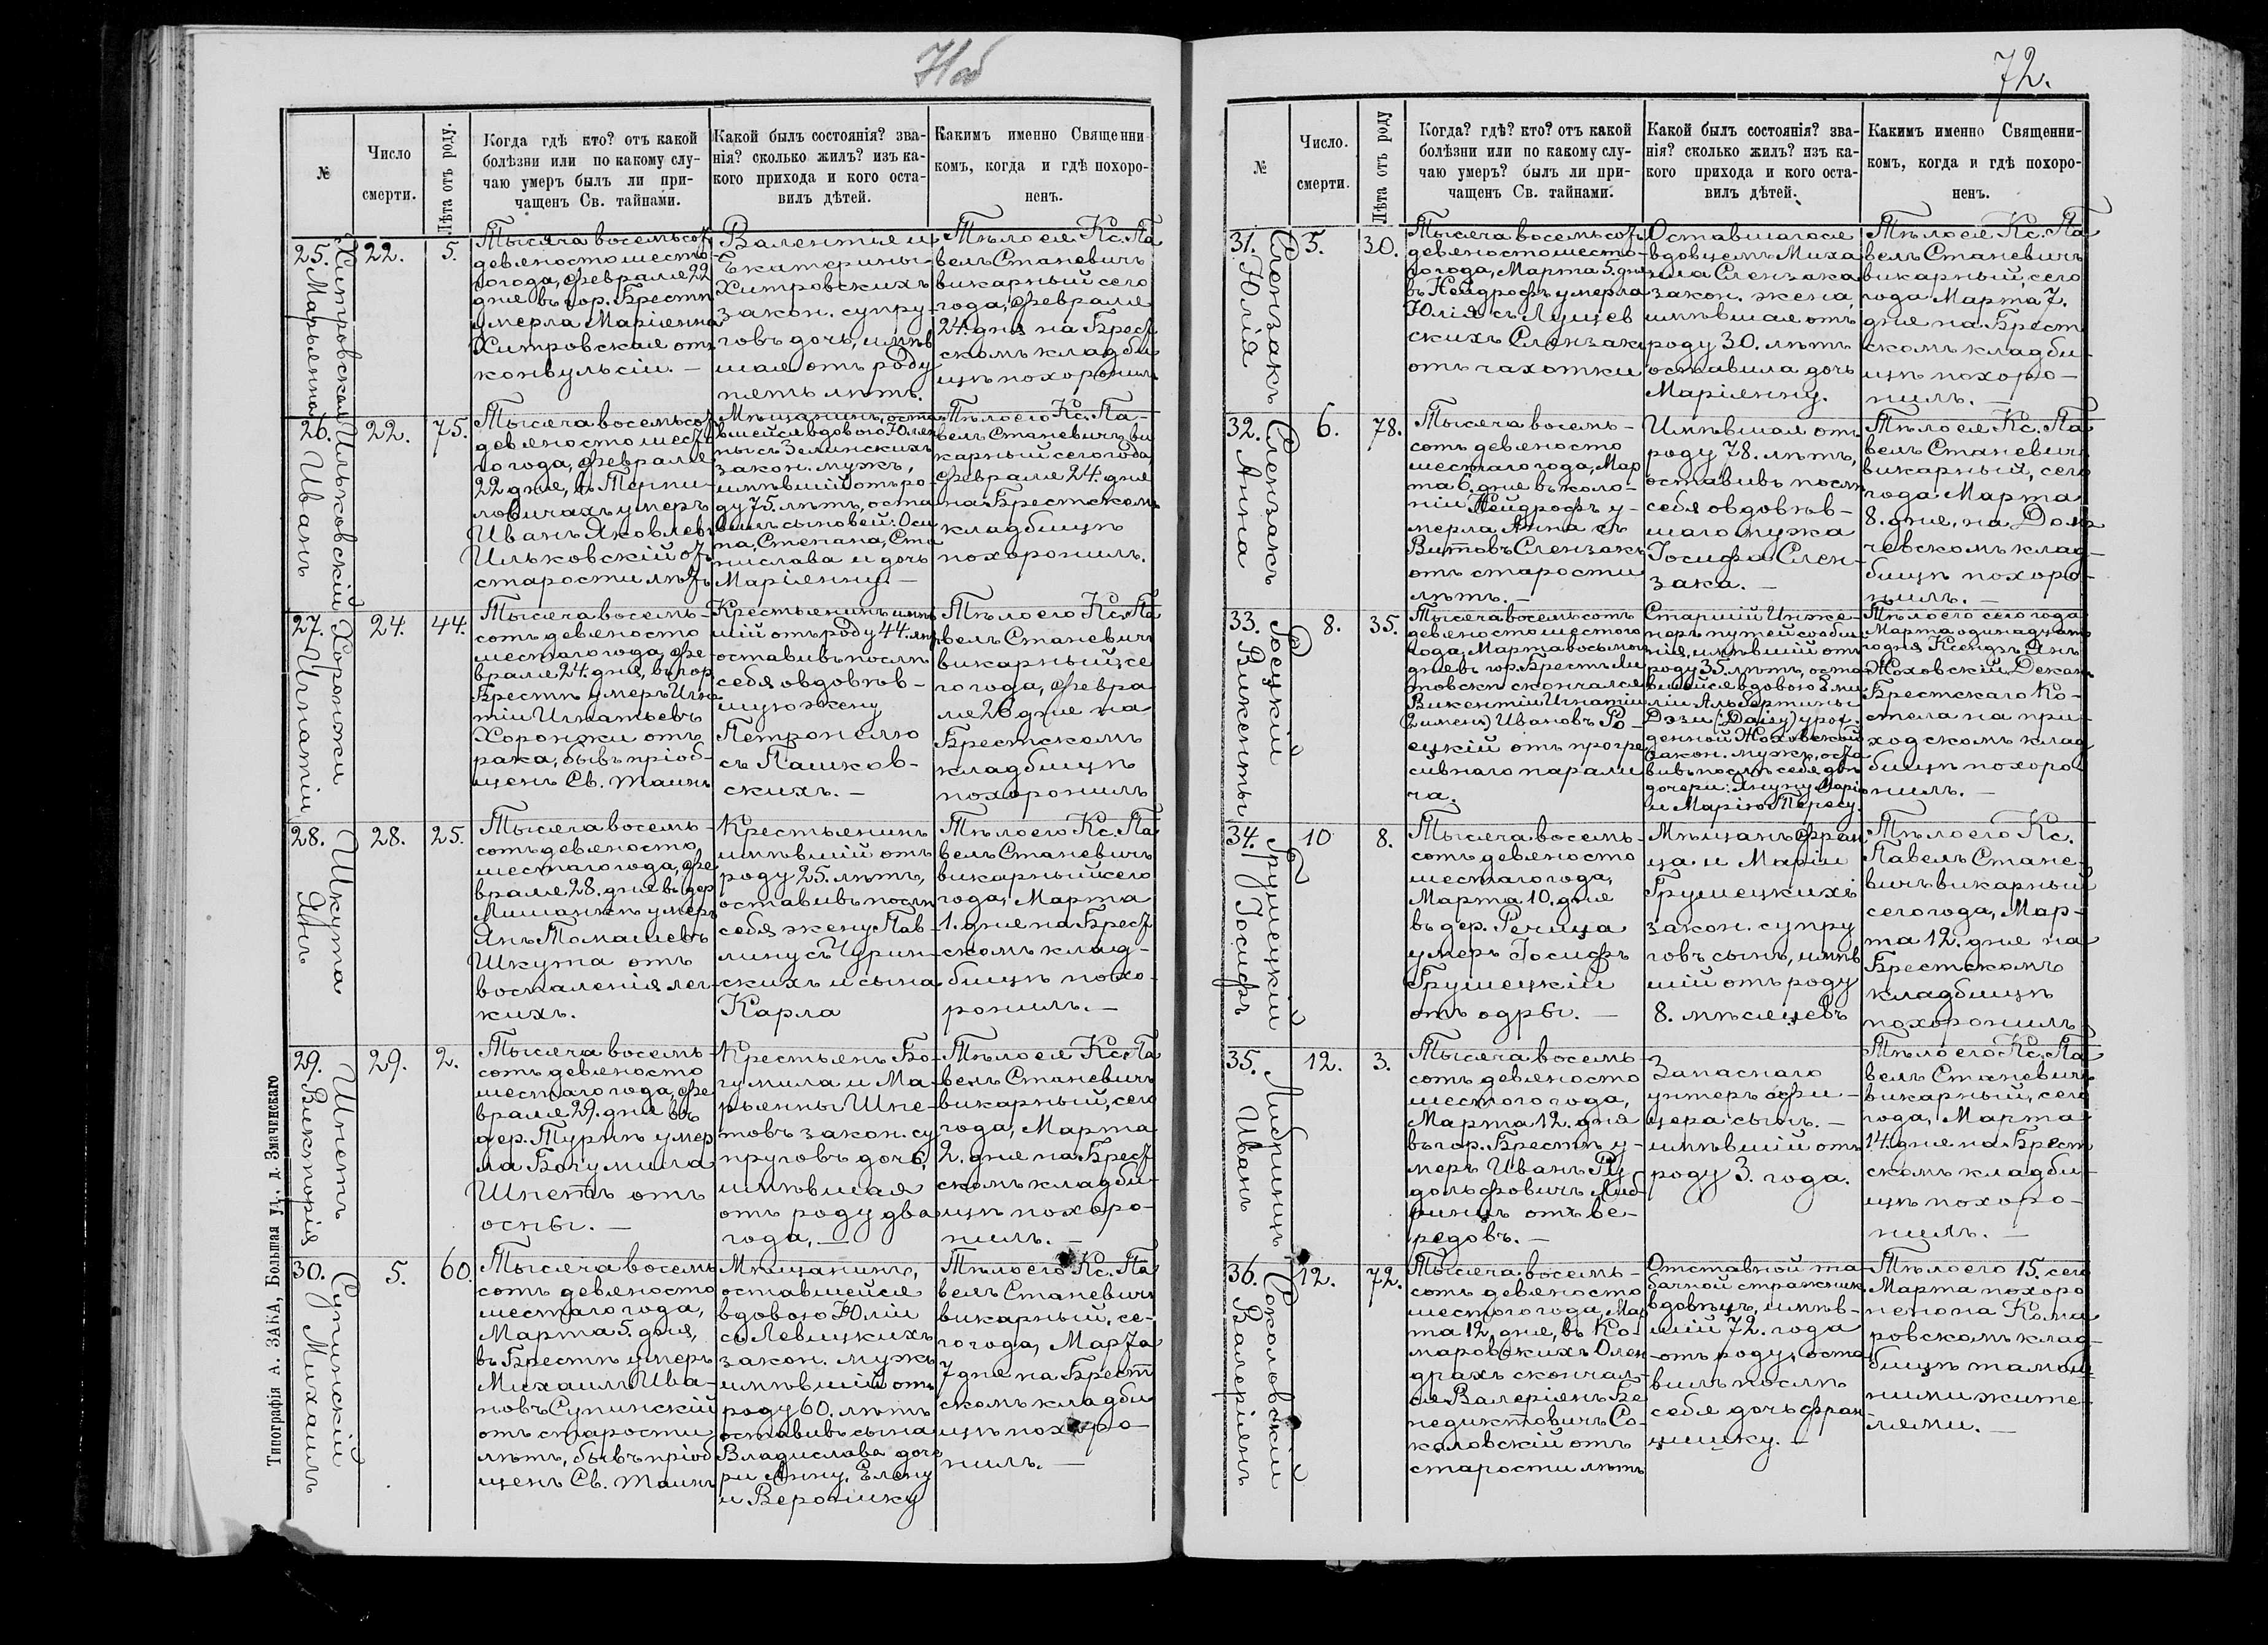 72.
№
Число смерти.
Лѣта отъ роду.
Когда гдѣ кто? отъ какой
болѣзни или по какому слу-
чаю умеръ былъ ли при-
чащенъ Св. тайнами.
Какой былъ состоянія? зва-
нія? сколько жилъ? изъ ка-
кого прихода и кого оста-
вилъ дѣтей.
Какимъ именно Священни-
комъ, когда и гдѣ похоро-
ненъ.
25.
Хитровская
Марьянна
22.
5.
Тысяча восемьсотъ
девяносто шесто-
го года, февраля 22
дня въ гор. Брестѣ
умерла Маріянна
Хитровская отъ
конвульсіи. —
Валентія и
Екатерины
Хитровскихъ
закон. супру-
говъ дочь, имѣв
шая отъ роду
пять лѣтъ.
Тѣло ея Кс. Па
велъ Станевичъ
викарный сего
года, февраля
24. дня на Брест
скомъ кладби
щѣ похоронилъ
26.
Ильковскій
Иванъ
22.
75.
Тысяча восемьсотъ
девяносто шесто
го года, февраля
22 дня, въ Терпи-
ловичахъ умеръ
Иванъ Яковлевъ
Ильковскій отъ
старости лѣтъ
Мѣщанинъ, оста
вшейся вдовою Юлен
ны съ Зелинскихъ
закон. мужъ,
имѣвшій отъ ро-
ду 75. лѣтъ, оста
вилъ сыновей: Оси
па, Степана, Ста
нислава и дочь
Маріянну. —
Тѣло его Кс. Па-
велъ Станевичъ ви
карный сего года,
февраля 24. дня
на Брестскомъ
кладбищѣ
похоронилъ.
27.
Хоронжи
Игнатій
24.
44.
Тысяча восемь-
сотъ девяносто
шестаго года, фе-
враля 24. дня, въ гор.
Брестѣ умеръ Игна
тій Игнатьевъ
Хоронжи отъ
рака, бывъ пріоб-
щенъ Св. таинъ
Крестьянинъ имѣв
шій отъ роду 44. лѣтъ
оставивъ послѣ
себя овдовѣв-
шую жену
Петронелю
съ Пашков-
скихъ. —
Тѣло его Кс. Па
велъ Станевичъ
викарный, се
го года, февра
ля 26 дня на
Брестскомъ
кладбищѣ
похоронилъ
28.
Шкута
Янъ
28.
25.
Тысяча восемь-
сотъ девяносто
шестаго года, фе
враля 28. дня въ дер
Мишанкѣ умеръ
Янъ Томашевъ
Шкута отъ
воспаленія лег-
кихъ.
Крестьянинъ
имѣвшій отъ
роду 25. лѣтъ,
оставивъ послѣ
себя жену Пав-
лину съ Чурин-
скихъ и сына
Карла
Тѣло его Кс. Па
велъ Станевичъ
викарный сего
года, Марта
1. дня на Брест
скомъ клад-
бищѣ похо-
ронилъ. —
29.
Шпетъ
Викторія
29.
2.
Тысяча восемь-
сотъ девяносто
шестаго года, фе
враля 29. дня въ
дер. Турнѣ умер
ла Богумила
Шпетъ отъ
оспы. —
Крестьянъ Бо-
гумила и Ма-
рьянны Шпе-
товъ закон. су
пруговъ дочь,
имѣвшая
отъ роду два
года. —
Тѣло ея Кс. Па
велъ Станевичъ
викарный, сего
года, Марта
2. дня на Брест
скомъ кладби-
щѣ похоро-
нилъ. —
30.
Супинскій
Михаилъ
5.
60.
Тысяча восемь
сотъ девяносто
шестаго года,
Марта 5. дня,
въ Брестѣ умеръ
Михаилъ Ива-
новъ Супинскій
отъ старости
лѣтъ, бывъ пріоб
щенъ Св. таинъ
Мѣщанинъ,
оставшейся
вдовою Юліи
съ Левицкихъ
закон. мужъ
имѣвшій отъ
роду 60. лѣтъ
оставивъ сына
Владислава доче
ри Анну, Елену
и Веронику
Тѣло его Кс. Па
велъ Станевичъ
викарный, се-
го года, Марта
7 дня на Брест
скомъ кладби
щѣ похоро-
нилъ. —
Типографія А. ЗАКА, Большая ул., д. Змачинскаго
№
Число.
смерти.
Лѣта отъ роду
Когда? гдѣ? кто? отъ какой
болѣзни или по какому слу-
чаю умеръ? былъ ли при-
чащенъ Св. тайнами.
Какой былъ состоянія? зва-
нія? сколько жилъ? изъ ка-
кого прихода и кого оста-
вилъ дѣтей.
Какимъ именно Священни-
комъ, когда и гдѣ похоро-
ненъ.
31.
Слензакъ
Юлія
5.
30.
Тысяча восемьсотъ
девяносто шесто-
го года, Марта 5. дня
въ Нейдорфѣ умерла
Юлія съ Лущев
скихъ Слензакъ
отъ чахотки
Оставшагося
вдовцемъ Миха
ила Слензака
закон. жена,
имѣвшая отъ
роду 30. лѣтъ
оставила дочь
Маріянну.
Тѣло ея Кс. Па
велъ Станевичъ
викарный, сего
года Марта 7.
дня на Брест
скомъ кладби-
щѣ похоро-
нилъ. —
32.
Слензакъ
Анна
6.
78.
Тысяча восемь-
сотъ девяносто
шестаго года, Мар
та 6. дня въ коло-
ніи Нейдорфъ у-
мерла Анна съ
Витовъ Слензакъ
отъ старости
лѣтъ. —
Имѣвшая отъ
роду 78. лѣтъ,
оставивъ послѣ
себя овдовѣв-
шаго мужа
Іосифа Слен-
зака. —
Тѣло ея Кс. Па
велъ Станевичъ
викарный, сего
года Марта
8. дня, на Дом
чевскомъ клад-
бищѣ похоро-
нилъ. —
33.
Росецкій
Викентій
8.
35.
Тысяча восемьсотъ
девяносто шестого
года, Марта восьмаго
дня въ гор. Брестъ-Ли
товскѣ скончался
Викентій Игнатій
(2 имени) Ивановъ Ро-
сецкій отъ прогре
сивнаго парали
ча.
Старшій Инже-
неръ путей сообще
нія, имѣвшій отъ
роду 35. лѣтъ, оста
вшейся вдовою Эми
ліи Альбертины
Дэзи (Daisy) урож-
денной Жоховской
закон. мужъ, оста
вивъ послѣ себя двѣ
дочери: Янину Марію
и Марію Тересу.
Тѣло его сего года
Марта одинадцата
го дня Ксендзъ Янъ
Жоховскій Деканъ
Брестскаго Ко-
стела на при-
ходскомъ клад
бищѣ похоро-
нилъ. —
34.
Грушецкій
Іосифъ
10
8.
Тысяча восемь-
сотъ девяносто
шестаго года,
Марта 10. дня
въ дер. Речица
умеръ Іосифъ
Грушецкій
отъ одры. —
Мѣщанъ Фран
ца и Маріи
Грушецкихъ
закон. супру
говъ сынъ, имѣв
шій отъ роду
8. мѣсяцевъ
Тѣло его Кс.
Павелъ Стане-
вичъ викарный
сего года, Мар-
та 12. дня на
Брестскомъ
кладбищѣ
похоронилъ
35.
Либринцъ
Иванъ
12.
3.
Тысяча восемь
сотъ девяносто
шестого года,
Марта 12. дня
въ гор. Брестѣ у-
меръ Иванъ Ру
дольфовичъ Либ-
ринцъ отъ ве-
редовъ. —
Запаснаго
унтеръ офи-
цера сынъ. —
имѣвшій отъ
роду 3. года.
Тѣло его Кс. Па
велъ Станевичъ
викарный, сего
года, Марта
14. дня на Брест
скомъ кладби-
щѣ похоро-
нилъ. —
36.
Соколовскій
Валеріянъ
12.
72.
Тысяча восемь-
сотъ девяносто
шестого года, Мар
та 12. дня, въ Ко-
маровскихъ Олен
драхъ скончал-
ся Валеріянъ Бе
недиктовичъ Со-
коловскій отъ
старости лѣтъ
Отставной та-
бачной стражникъ
вдовецъ, имѣв-
шій 72. года
отъ роду, оста
вилъ послѣ
себя дочь Фран
цишку. —
Тѣло его 15. сего
Марта похоро
нено на Кома
ровскомъ клад-
бищѣ тамош
ними жите-
лями. —